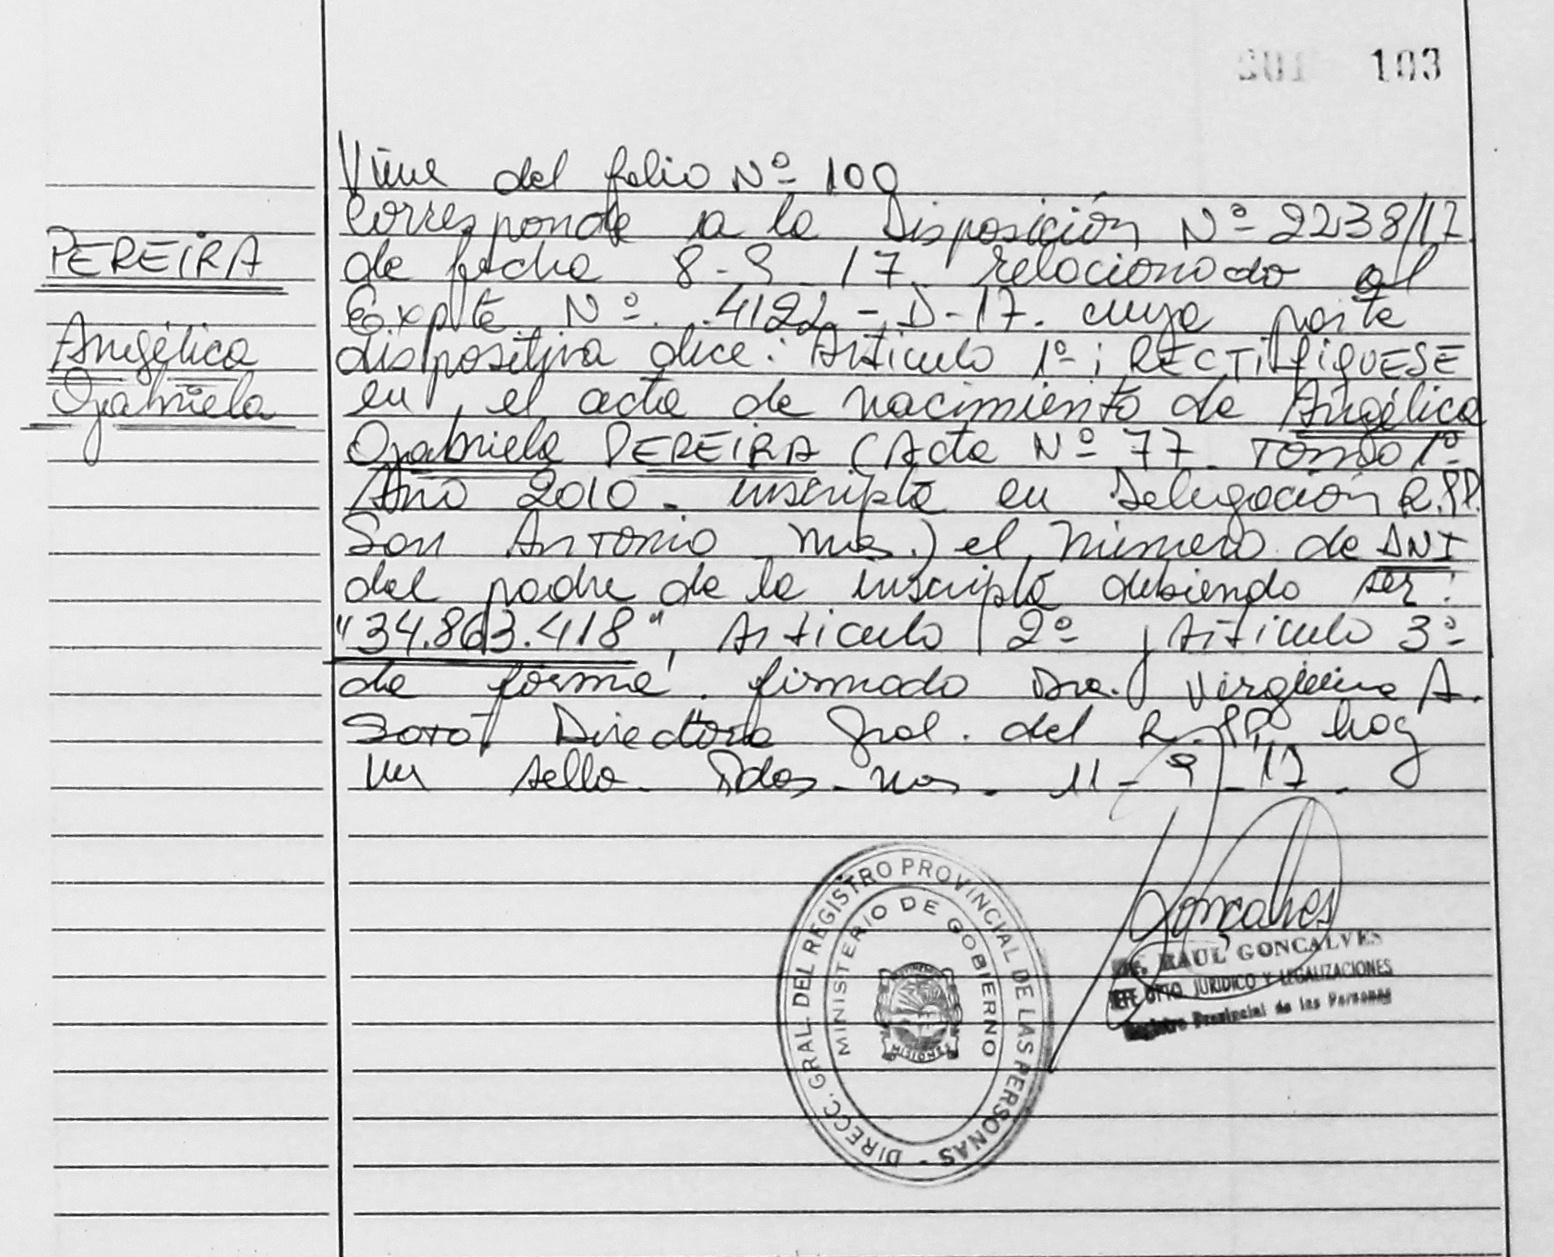 201 103
Viene del folio Nº 100
Corresponde a la Disposición Nº 2238/17
PEREIRA
de fecha 8-9-17 relacionado al
Expte. Nº 4122-D-17. cuya parte
Angélica
dispositiva dice: Artículo 1º; RECTIFIQUESE
Gabriela
en el acta de nacimiento de Angélica
Gabriela PEREIRA (Acta Nº 77. Tomo 1º
Año 2010. inscripta en Delegación R.PP.
San Antonio Mnes.) el número de DNI
del padre de la inscripta debiendo ser:
"34.863.418", Artículo 2º, Artículo 3º
de forma. firmado Dra. Virginia A.
Soto Directora Gral. del R.PP. hay
un sello. Pdas. Mnes. 11-9-17.
DIRECC. GRAL. DEL REGISTRO PROVINCIAL DE LAS PERSONAS -
MINISTERIO DE GOBIERNO
MISIONES
Goncalves
Dr. RAUL GONCALVES
JEFE DPTO JURIDICO Y LEGALIZACIONES
Registro Provincial de las Personas